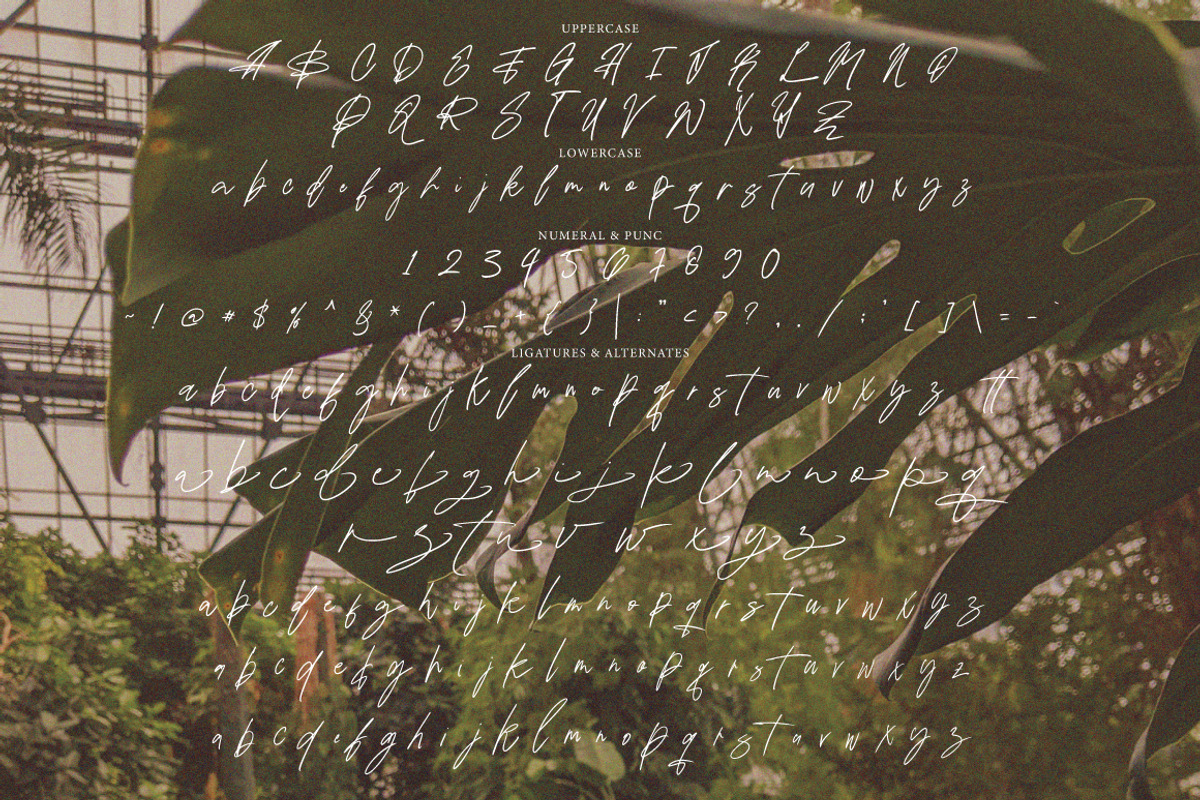 UPPERCASE
A B C D E F G H I J K L M N O
P Q R S T U V W X Y Z
LOWERCASE
a b c d e f g h i j k l m n o p q r s t u v w x y z
NUMERAL & PUNC
1 2 3 4 5 6 7 8 9 0
~ ! @ # $ % ^ & * ( ) _ + { } | : " < > ? , . / ; ' [ ] \ = - `
LIGATURES & ALTERNATES
a b c d e f g h i j k l m n o p q r s t u v w x y z tt
a b c d e f g h i j k l m n o p q
r s t u v w x y z
a b c d e f g h i j k l m n o p q r s t u v w x y z
a b c d e f g h i j k l m n o p q r s t u v w x y z
a b c d e f g h i j k l m n o p q r s t u v w x y z